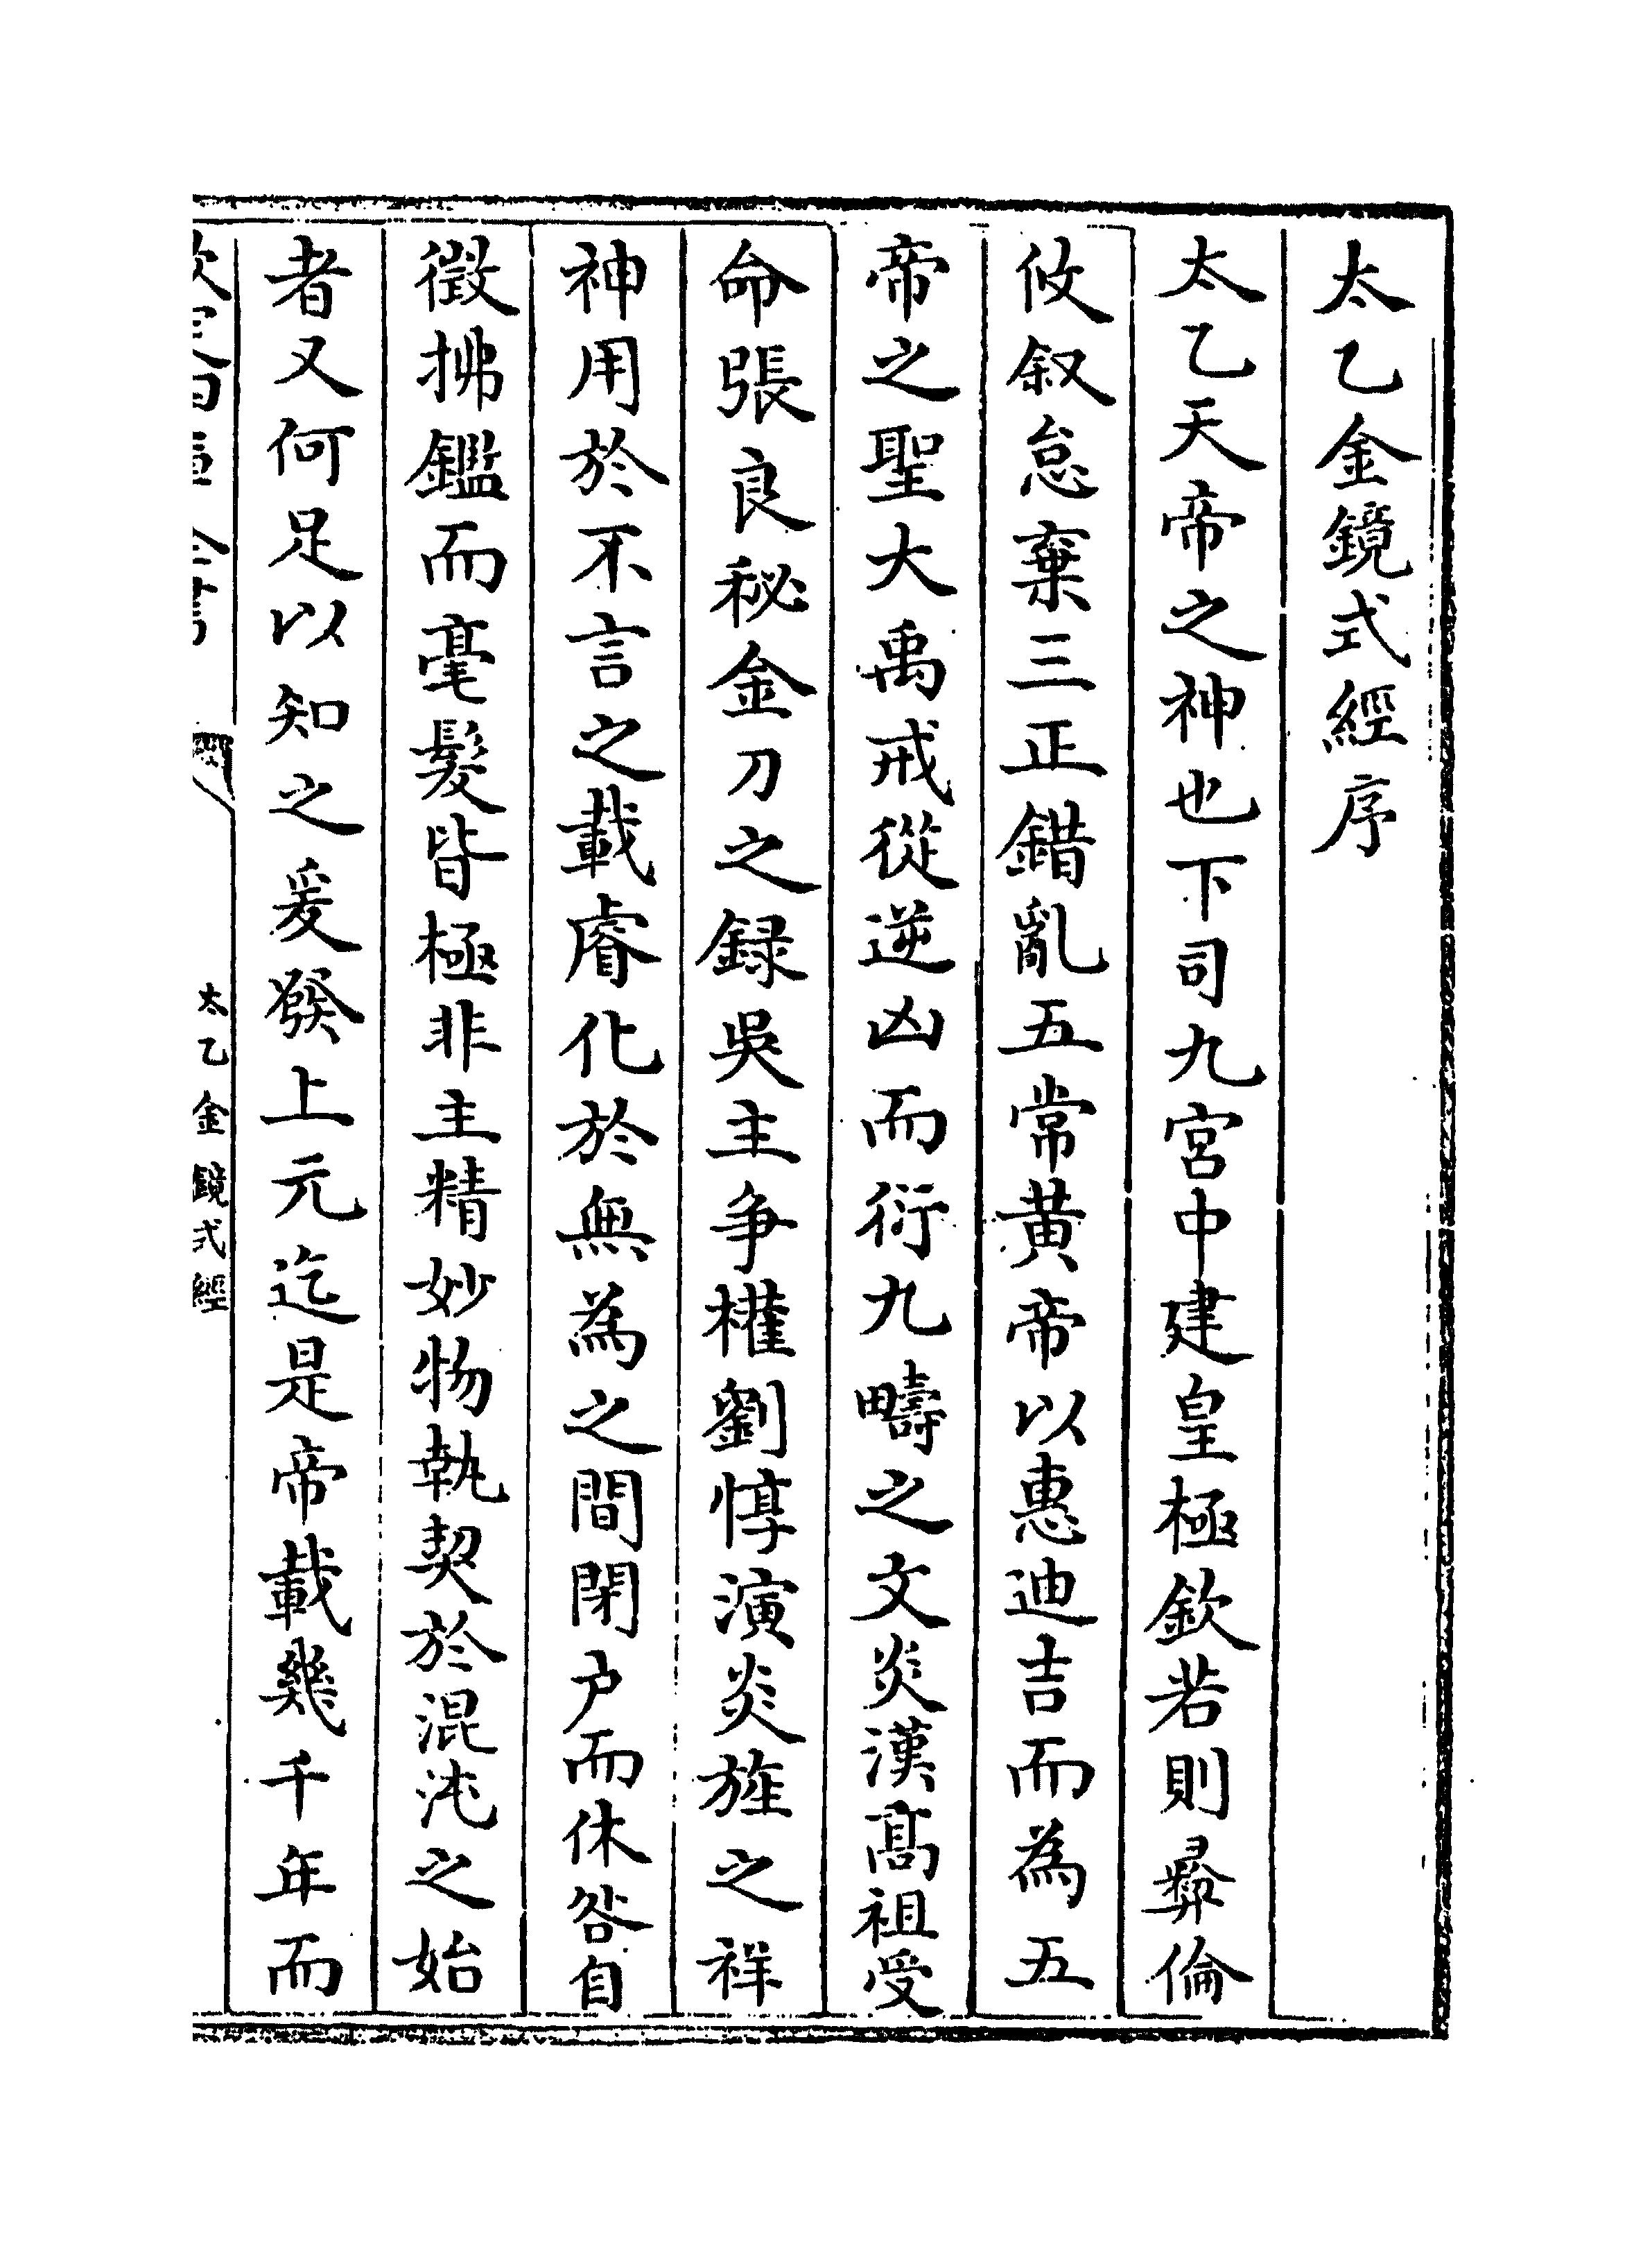 太乙金鏡式經序
太乙天帝之神也下司九宮中建皇極欽若則彛倫
攸叙怠棄三正錯亂五常黃帝以惠迪吉而為五
帝之聖大禹戒從逆凶而衍九疇之文炎漢髙祖受
命張良秘金刀之録吳主争權劉惇演炎旌之祥
神用於不言之載睿化於無為之間閉户而休咎自
徵拂鑑而毫髮皆極非主精妙物執契於混沌之始
者又何足以知之爰發上元迄是帝載幾千年而
太乙金鏡式經